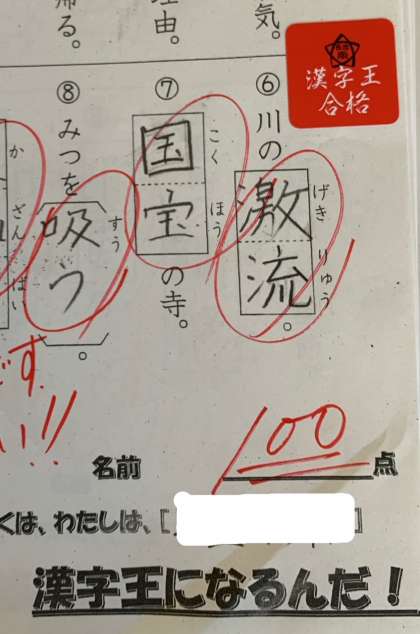 気。
由。
帰る。
漢字王
合格
⑥川の激流。
げきりゅう
⑦国宝の寺。
こくほう
⑧みつを吸う。
すう
かざんばい
です
い!!
名前
100点
くは、わたしは、[ ]
漢字王になるんだ!